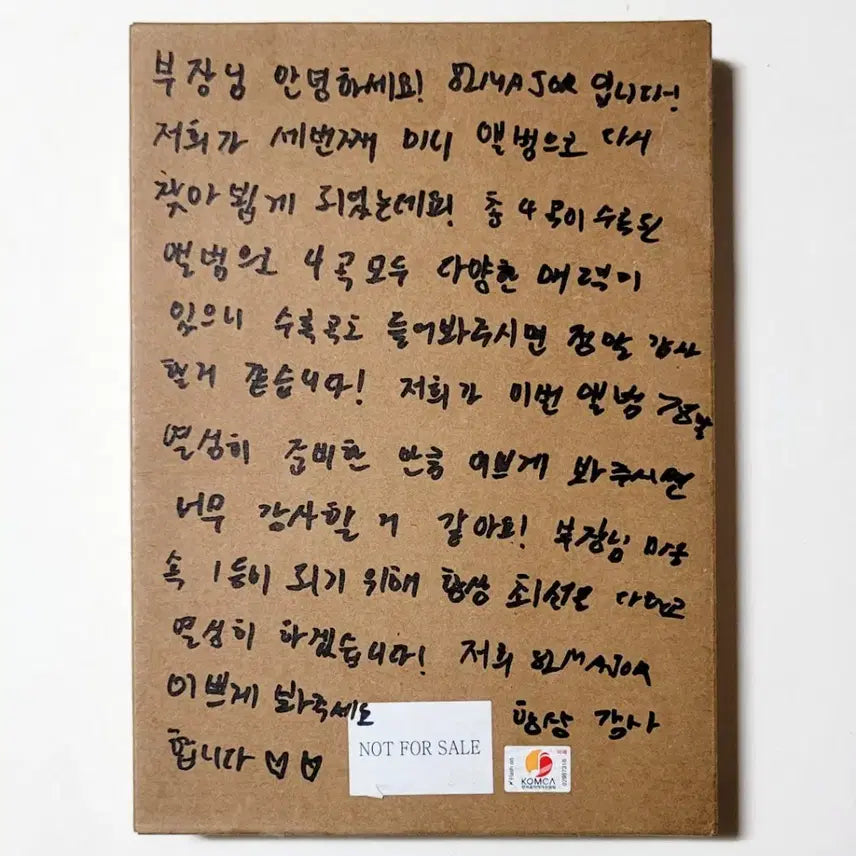 부장님 안녕하세요! 82MAJOR 입니다!
저희가 세번째 미니 앨범으로 다시
찾아뵙게 되었는데요! 총 4곡이 수록된
앨범으로 4곡 모두 다양한 매력이
있으니 수록곡도 들어봐주시면 정말 감사
할거 같습니다! 저희가 이번 앨범 정말
열심히 준비한 만큼 이쁘게 봐주시면
너무 감사할 거 같아요! 부장님 마음
속 1등이 되기 위해 항상 최선을 다하고
열심히 하겠습니다! 저희 82MAJOR
이쁘게 봐주세요 항상 감사
합니다
NOT FOR SALE
KOMCA